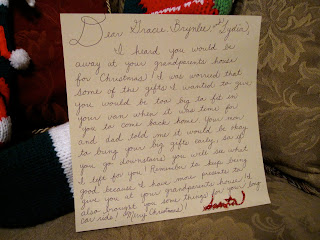 Dear Gracie, Brynlee and Lydia,
I heard you would be
away at your grandparents house
for Christmas! I was worried that
some of the gifts I wanted to give
you would be too big to fit in
your van when it was time for
you to come back home. Your mom
and dad told me it would be okay
to bring your big gifts early, so if
you go downstairs you will see what
I left for you! Remember to keep being
good because I have more presents to
give you at your grandparents house! I
also brought you some things for your long
car ride! Merry Christmas!! Santa